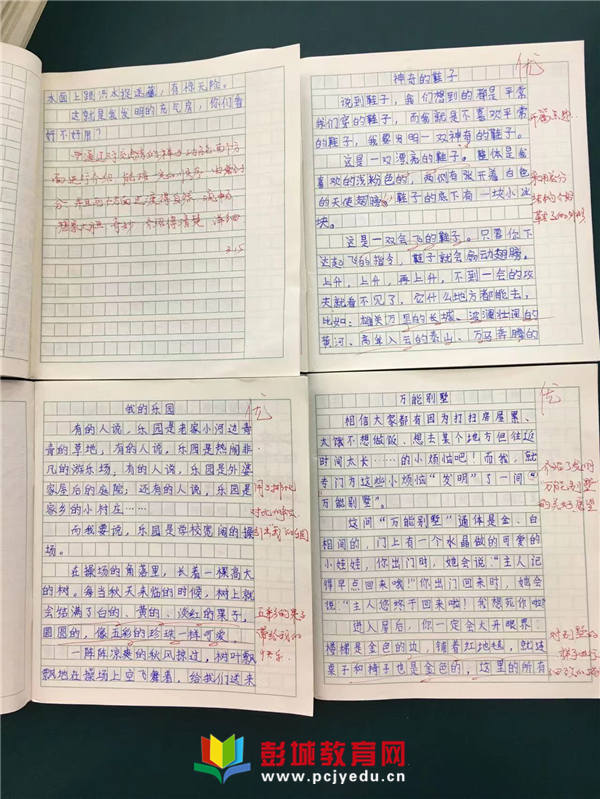 水面上跟污水捉迷藏,有惊无险。
这就是我发明的充气房,你们看
好不好用?
3.15
神奇的鞋子
优
说到鞋子,我们想到的都是平常
我们穿的鞋子,而我就是不喜欢平常
的鞋子,我要发明一双神奇的鞋子。
这是一双漂亮的鞋子。整体是我
喜欢的浅粉色的,两侧有张开着白色
的天使翅膀,鞋子的底下有一块小冰
块。
这是一双会飞的鞋子。只要你下
达起飞的指令,鞋子就会扇动翅膀。
上升,上升,再上升,不到一会的功
夫就看不见了,它什么地方都能去,
比如:雄关万里的长城、波澜壮阔的
黄河、高耸入云的泰山、万马奔腾的
我的乐园
优
有的人说,乐园是老家小河边青
青的草地,有的人说,乐园是热闹非
凡的游乐场,有的人说,乐园是外婆
家屋后的庭院;还有的人说,乐园是
家乡的小村庄……
而我要说,乐园是学校宽阔的操
场。
在操场的角落里,长着一棵高大
的树。每当秋天来临的时候,树上就
会结满了白的、黄的、淡红的果子,
圆圆的,像五彩的珍珠一样可爱。
一阵阵凉爽的秋风掠过,树叶飘
飘地在操场上空飞舞着,给我们送来
万能别墅
优
相信大家都有因为打扫房屋累、
太饿不想做饭、想去某个地方但往返
时间太长……的小烦恼吧!而我,就
专门为这些小烦恼“发明”了一间“
万能别墅”。
这间“万能别墅”通体是金、白
相间的,门上有一个水晶做的可爱的
小娃娃,你出门时,她会说:“主人记
得早点回来哦!”你出门回来时,她会
说:“主人您终于回来啦!我想死你啦!
进入屋后,你一定会大开眼界:
楼梯是金色的边,铺着红地毯,就连
桌子和椅子也是金色的,这里的所有
彭城教育网
www.pcjyedu.cn